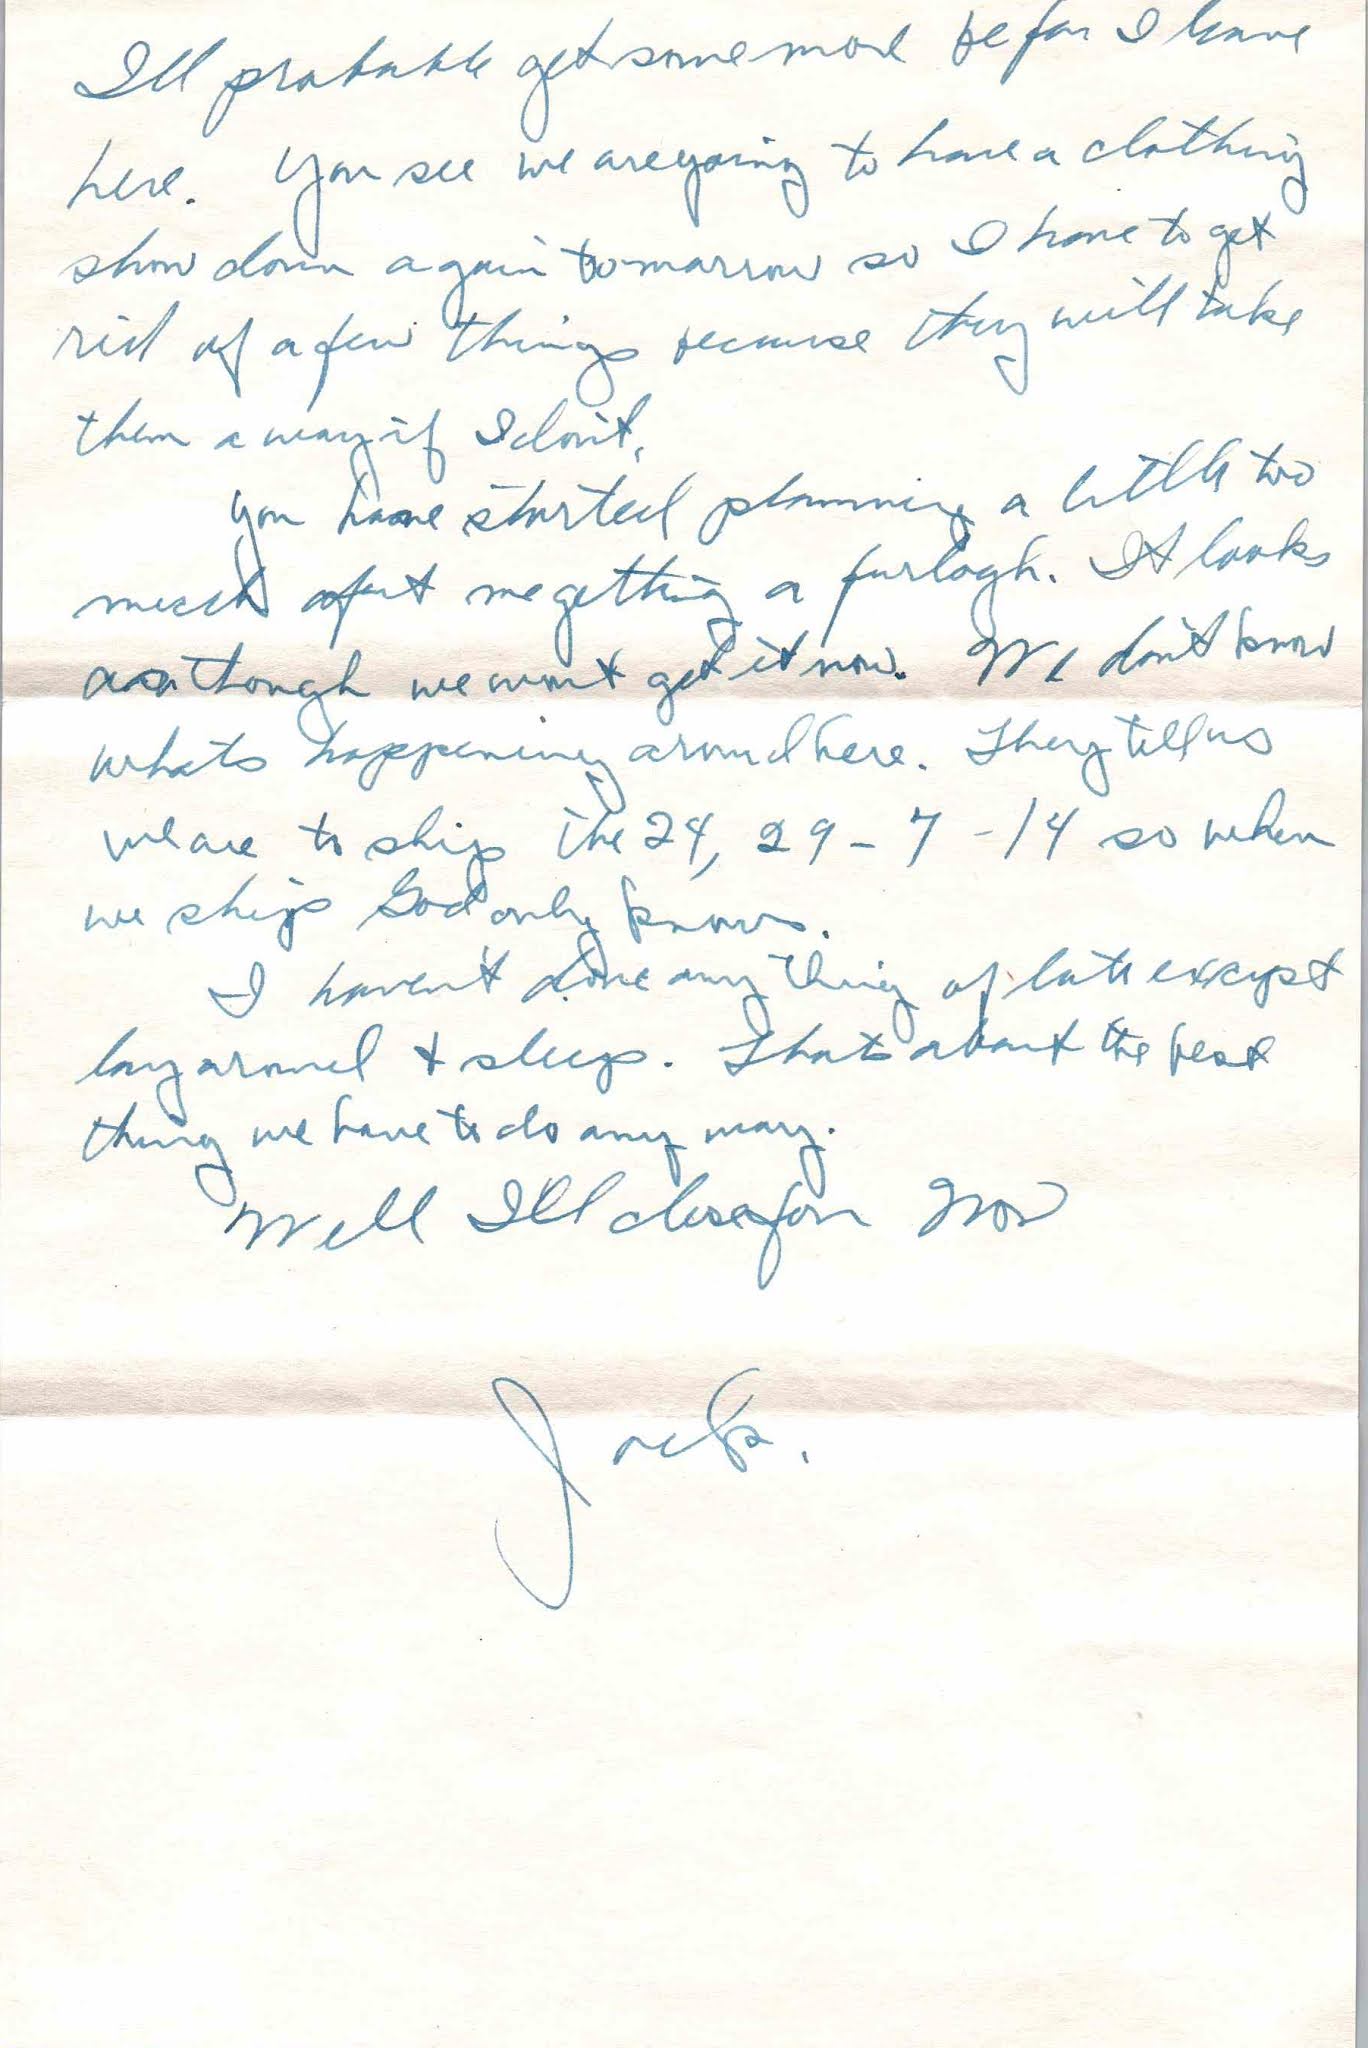 I'll probable get some more befor I leave
here. You see we are going to have a clothing
show down again tomarrow so I have to get
rid of a few things because they will take
them away if I don't.
You have started planning a little too
much me getting a furlogh. It looks
as though we wont get it now. We don't know
whats happening around here. They tell us
we are to ship the 24, 29 - 7 - 14 so when
we ship God only knows.
I haven't done anything of late except
lay around & sleep. Thats about the best
thing we have to do any way.
Well I'll close for Now
Jack.